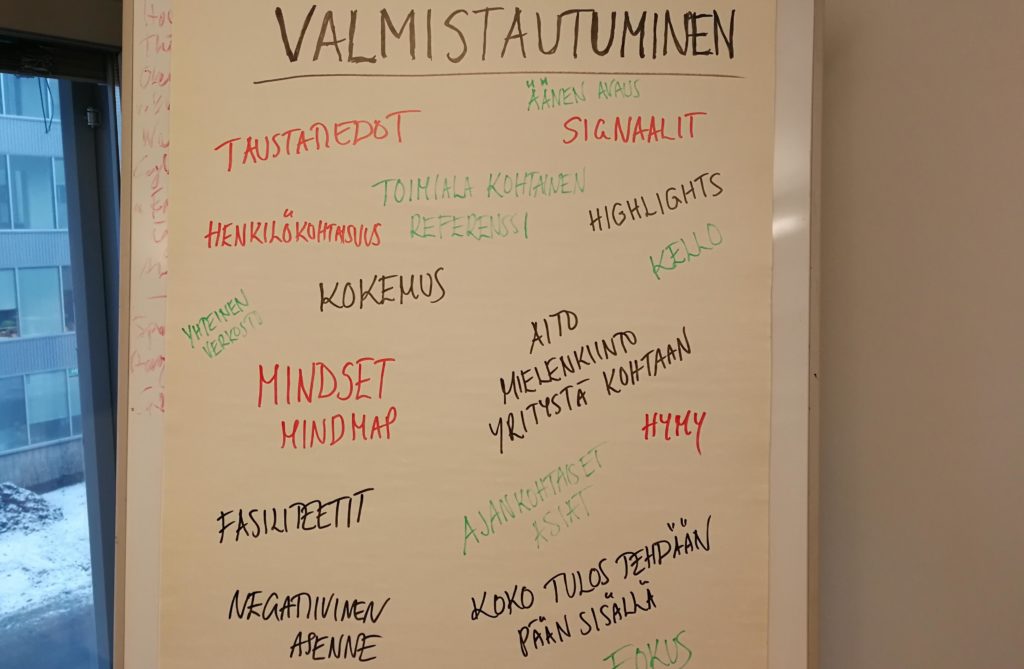 VALMISTAUTUMINEN
ÄÄNEN AVAUS
TAUSTATIEDOT
SIGNAALIT
TOIMIALA KOHTAINEN
REFERENSSI
HIGHLIGHTS
HENKILÖKOHTAISUUS
KELLO
KOKEMUS
YHTEINEN
VERKOSTO
AITO
MIELENKIINTO
YRITYSTÄ KOHTAAN
MINDSET
MINDMAP
HYMY
AJANKOHTAISET
ASIAT
FASILITEETIT
KOKO TULOS TEHDÄÄN
PÄÄN SISÄLLÄ
NEGATIIVINEN
ASENNE
FOKUS